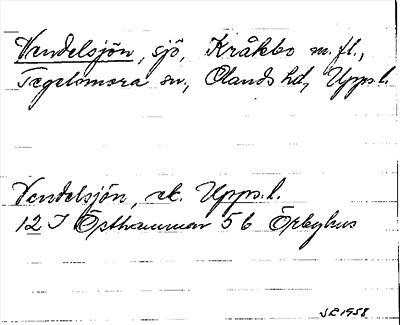 Vendelsjön, sjö, Kråkbo m.fl.,
Tegelsmora sn, Olands hd, Upps.l.
Vendelsjön, ek. Upps.l.
12 I Östhammar 5b Örbyhus
JE 1958